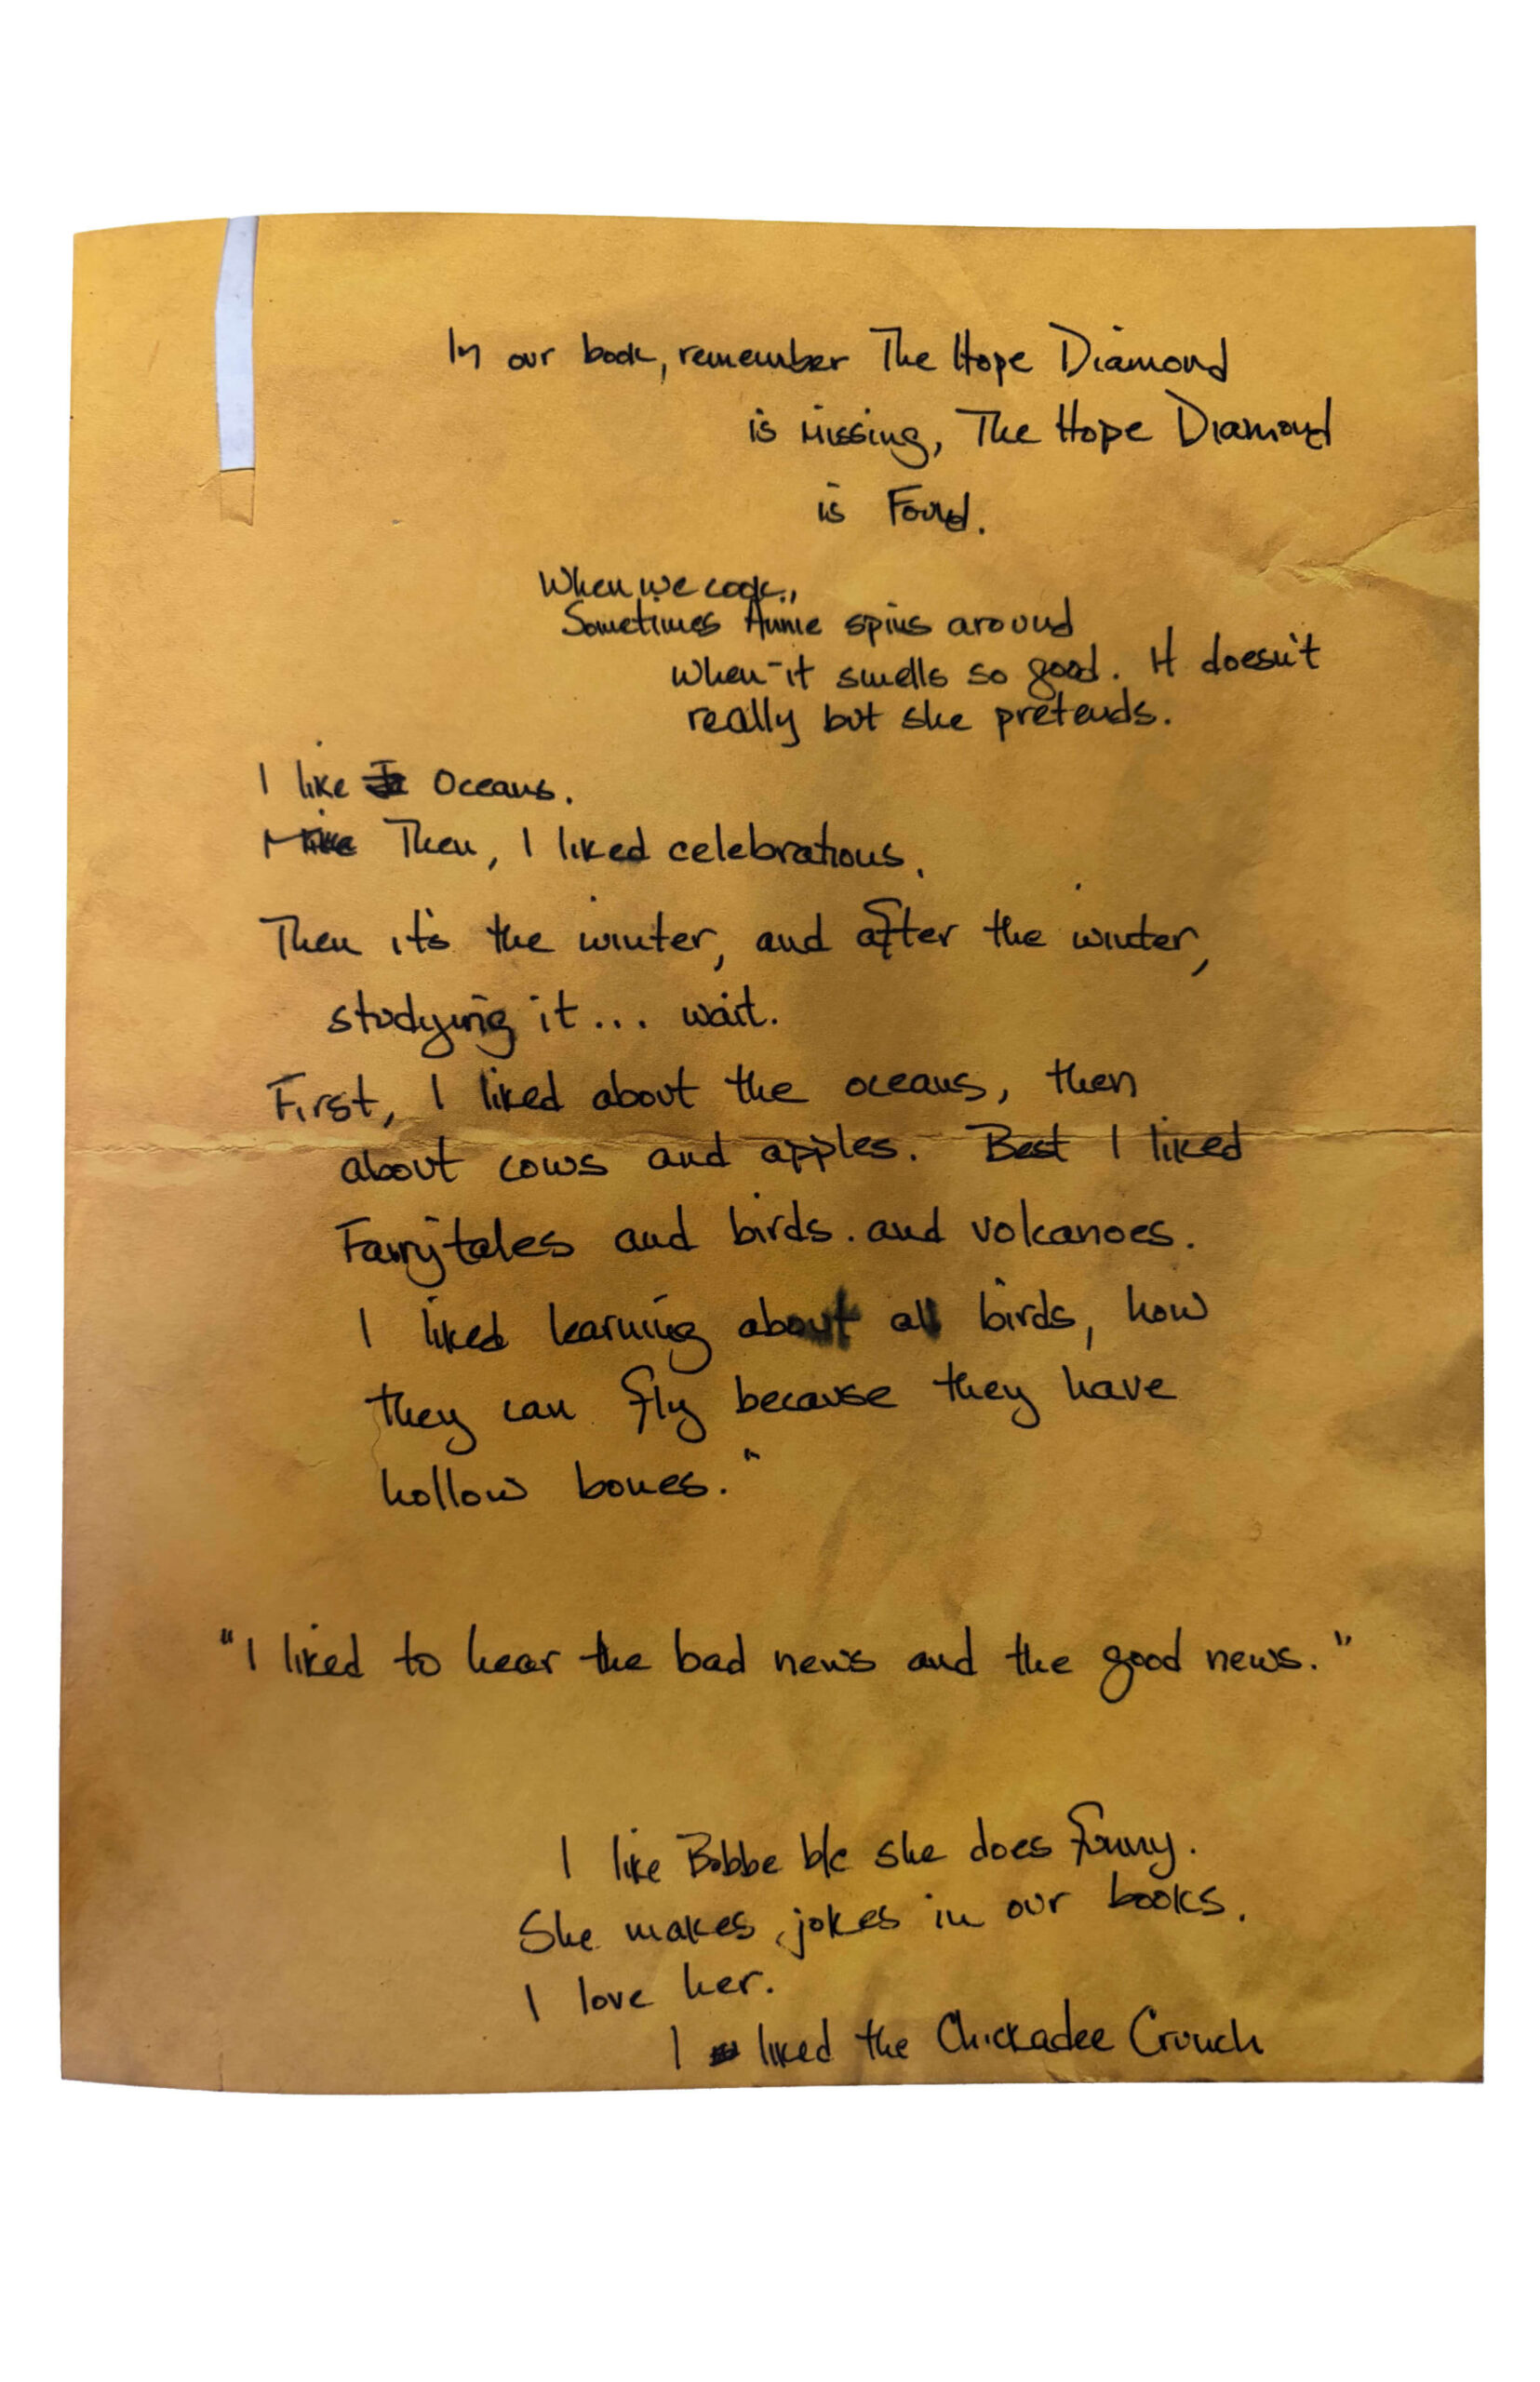 In our book, remember The Hope Diamond
is missing, The Hope Diamond
is Found.
When we cook,
Sometimes Annie spins around
when it smells so good. It doesn't
really but she pretends.
I like Oceans.
I like Then, I liked celebrations.
Then it's the winter, and after the winter,
studying it... wait.
First, I liked about the oceans, then
about cows and apples. Best I liked
Fairytales and birds. and volcanoes.
I liked learning about all birds, how
they can fly because they have
hollow bones."
"I liked to hear the bad news and the good news."
I like Bobbe b/c she does funny.
She makes jokes in our books.
I love her.
I liked the Chickadee Crunch